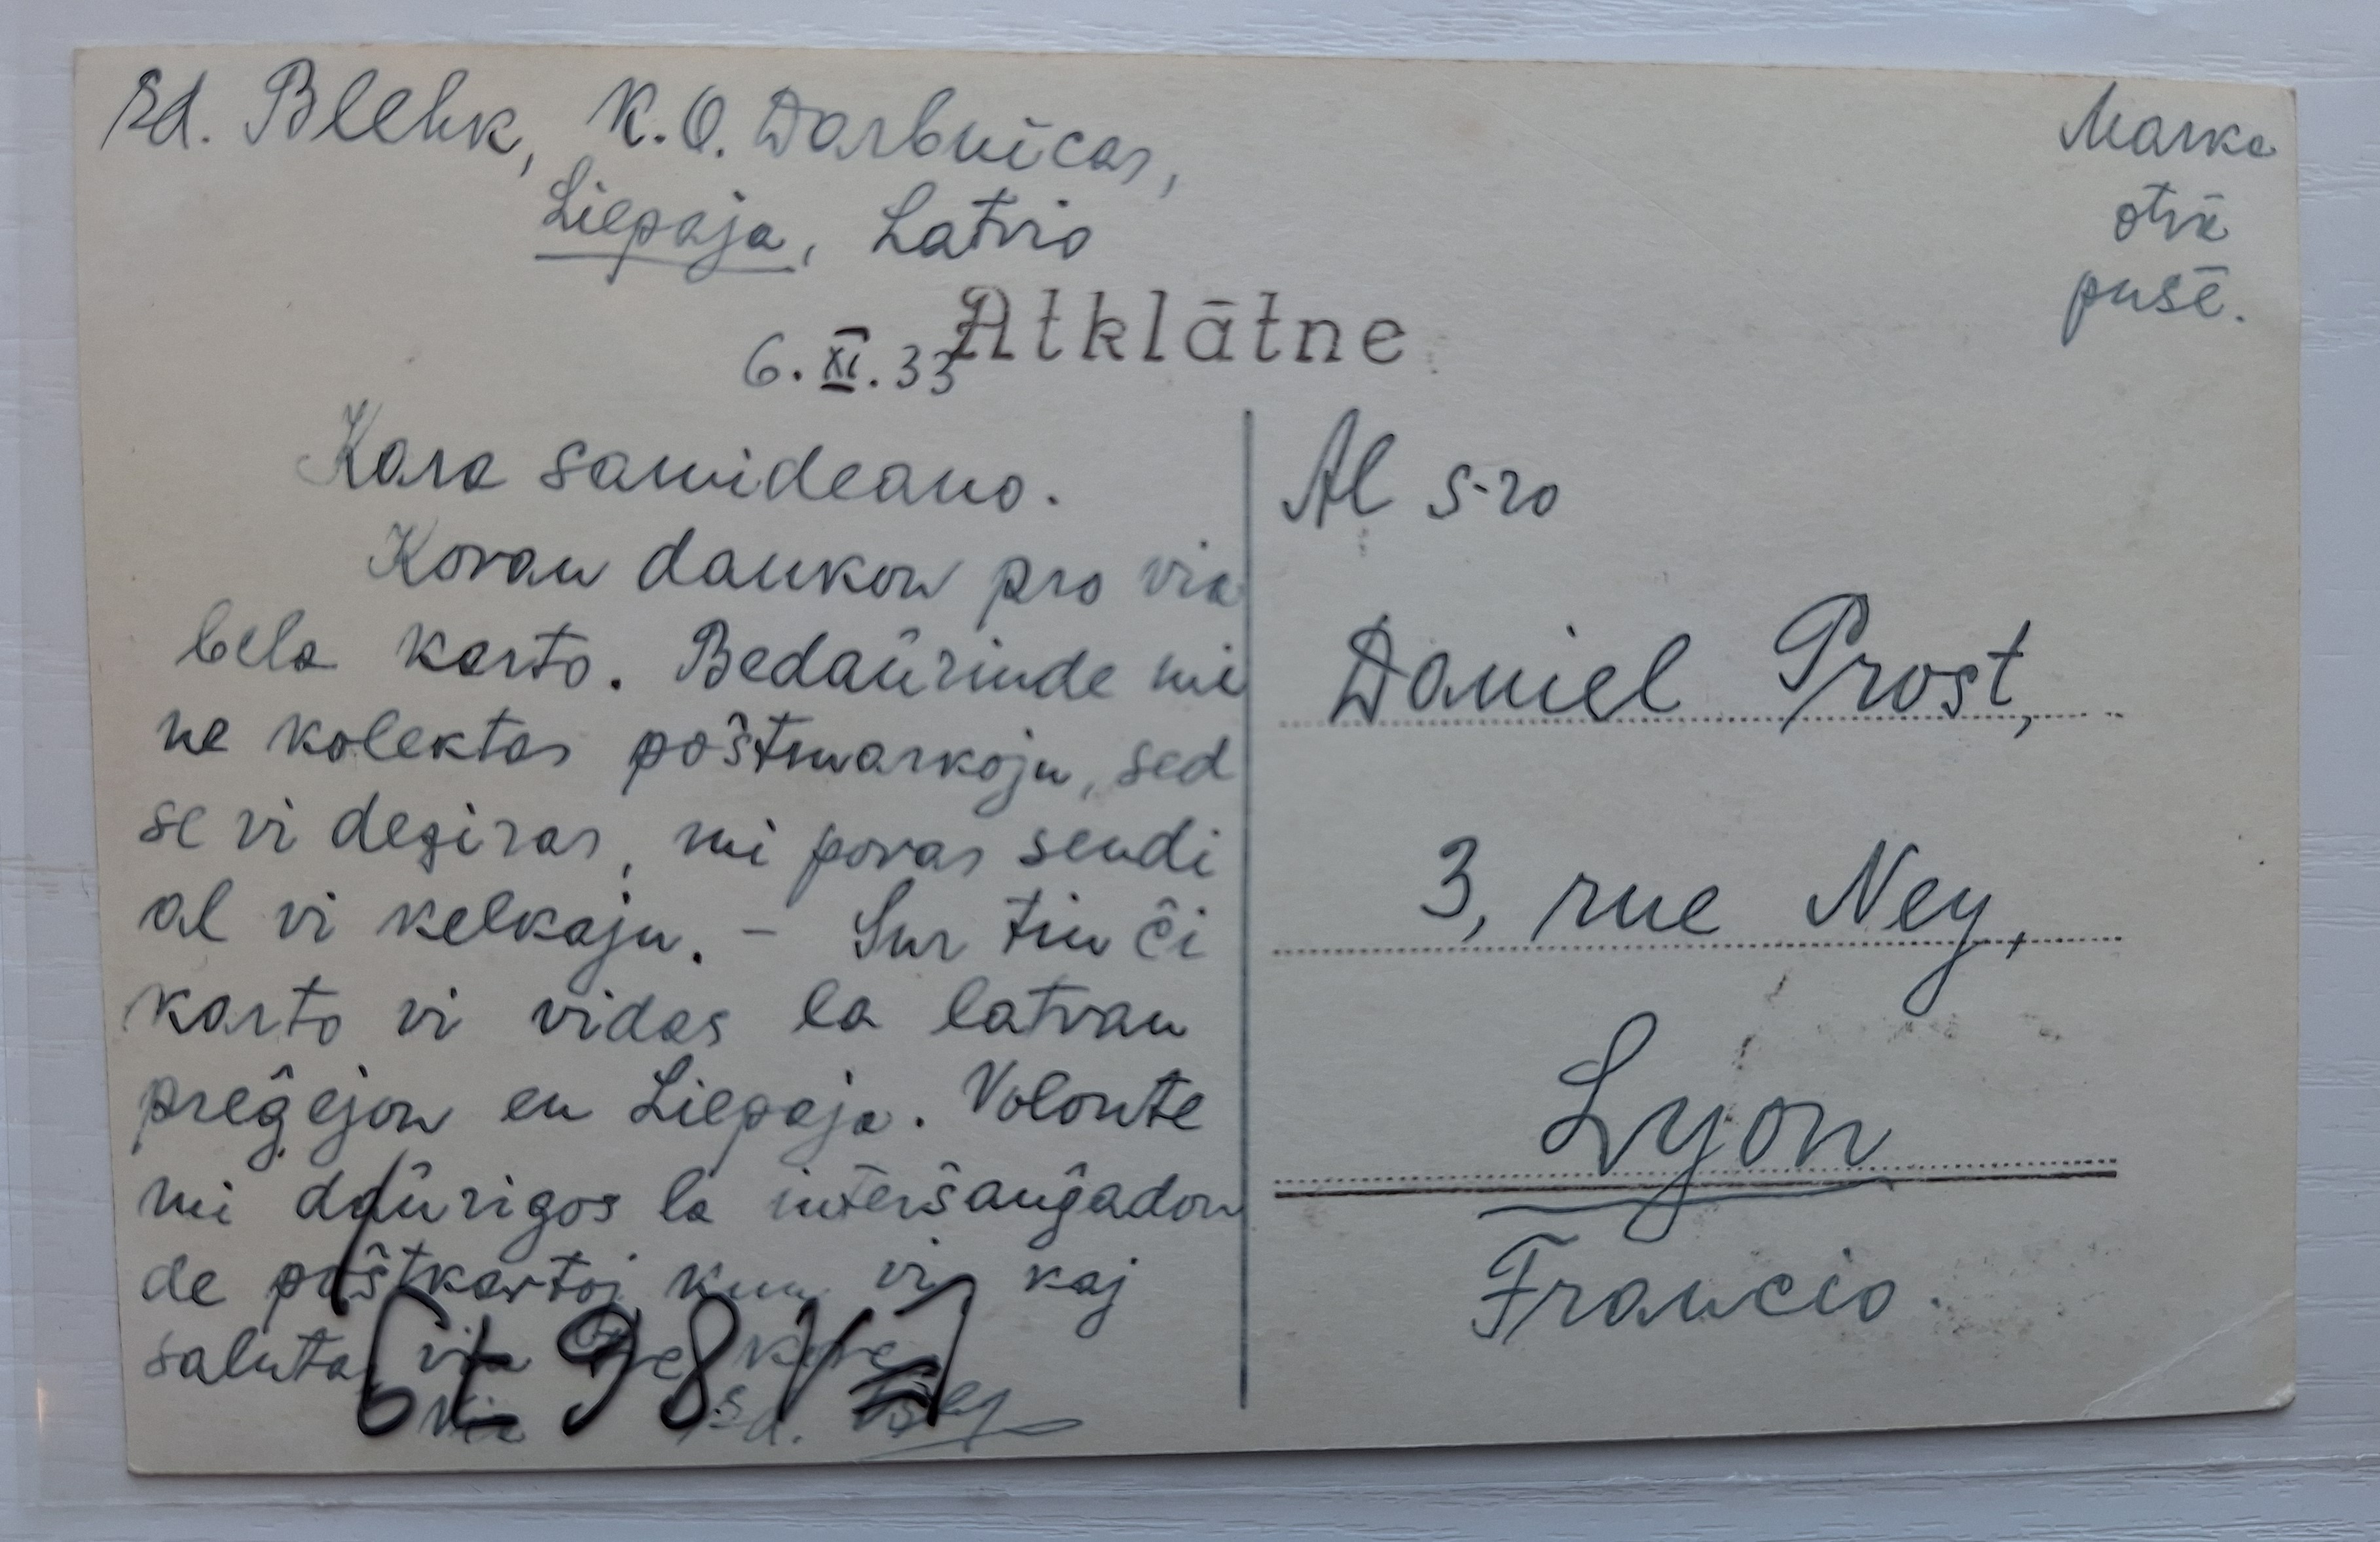 Ed. Blehk, K. O. Darbnīcas,
Liepaja, Latvio
Marka
otrā
pusē.
Atklātne
6. XI. 33
Kara samideano.
Koran dankon pro via
bela karto. Bedaŭrinde mi
ne kolektas poŝtmarkojn, sed
se vi deziras, mi povas sendi
al vi kelkajn. - Sur tiu ĉi
karto vi vidas la latvan
preĝejon en Liepaja. Volonte
mi daŭrigos la interŝanĝadon
de poŝtkartoj kun vi kaj
salutas vin
Via Ed.
Al s-ro
Daniel Prost,
3, rue Ney,
Lyon
Francio.